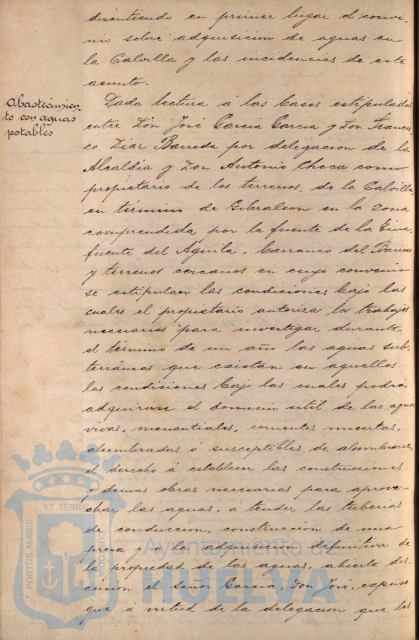 discutiendo en primer lugar el conve-
nio sobre adquisicion de aguas en
la Calvilla y las incidencias de este
asunto.
Abastecimien-
to con aguas
potables
Dada lectura á las bases estipuladas
entre Don José Garcia Garcia y Don Francis
co Diaz Barreda por delegacion de la
Alcaldia y Don Antonio Checa como
propietario de los terrenos, de la Calvilla
en término de Gibraleon en la zona
comprendida por la fuente de la
fuente del Aguila, barranco del
y terrenos cercanos en cuyo convenio
se estipulan las condiciones bajo las
cuales el propietario autoriza los trabajos
necesarios para investigar durante
el término de un año las aguas sub-
terráneas que existan en aquellos
las condiciones bajo las cuales podrá
adquirirse el dominio util de las aguas
vivas, manantiales, corrientes muertas,
alumbradas ó susceptibles de alumbrarse,
el derecho á establecer las construcciones
y demas obras necesarias para aprove-
char las aguas, á tender las tuberias
de conduccion, construccion de una
presa y á la adquisicion definitiva de
la propiedad de las aguas, abierta dis-
cusion el señor Garcia, Don José, expuso
que á virtud de la delegacion que les
PORTUS MARIS
ET TERRAE
CUSTODIA
Ayuntamiento de
HUELVA